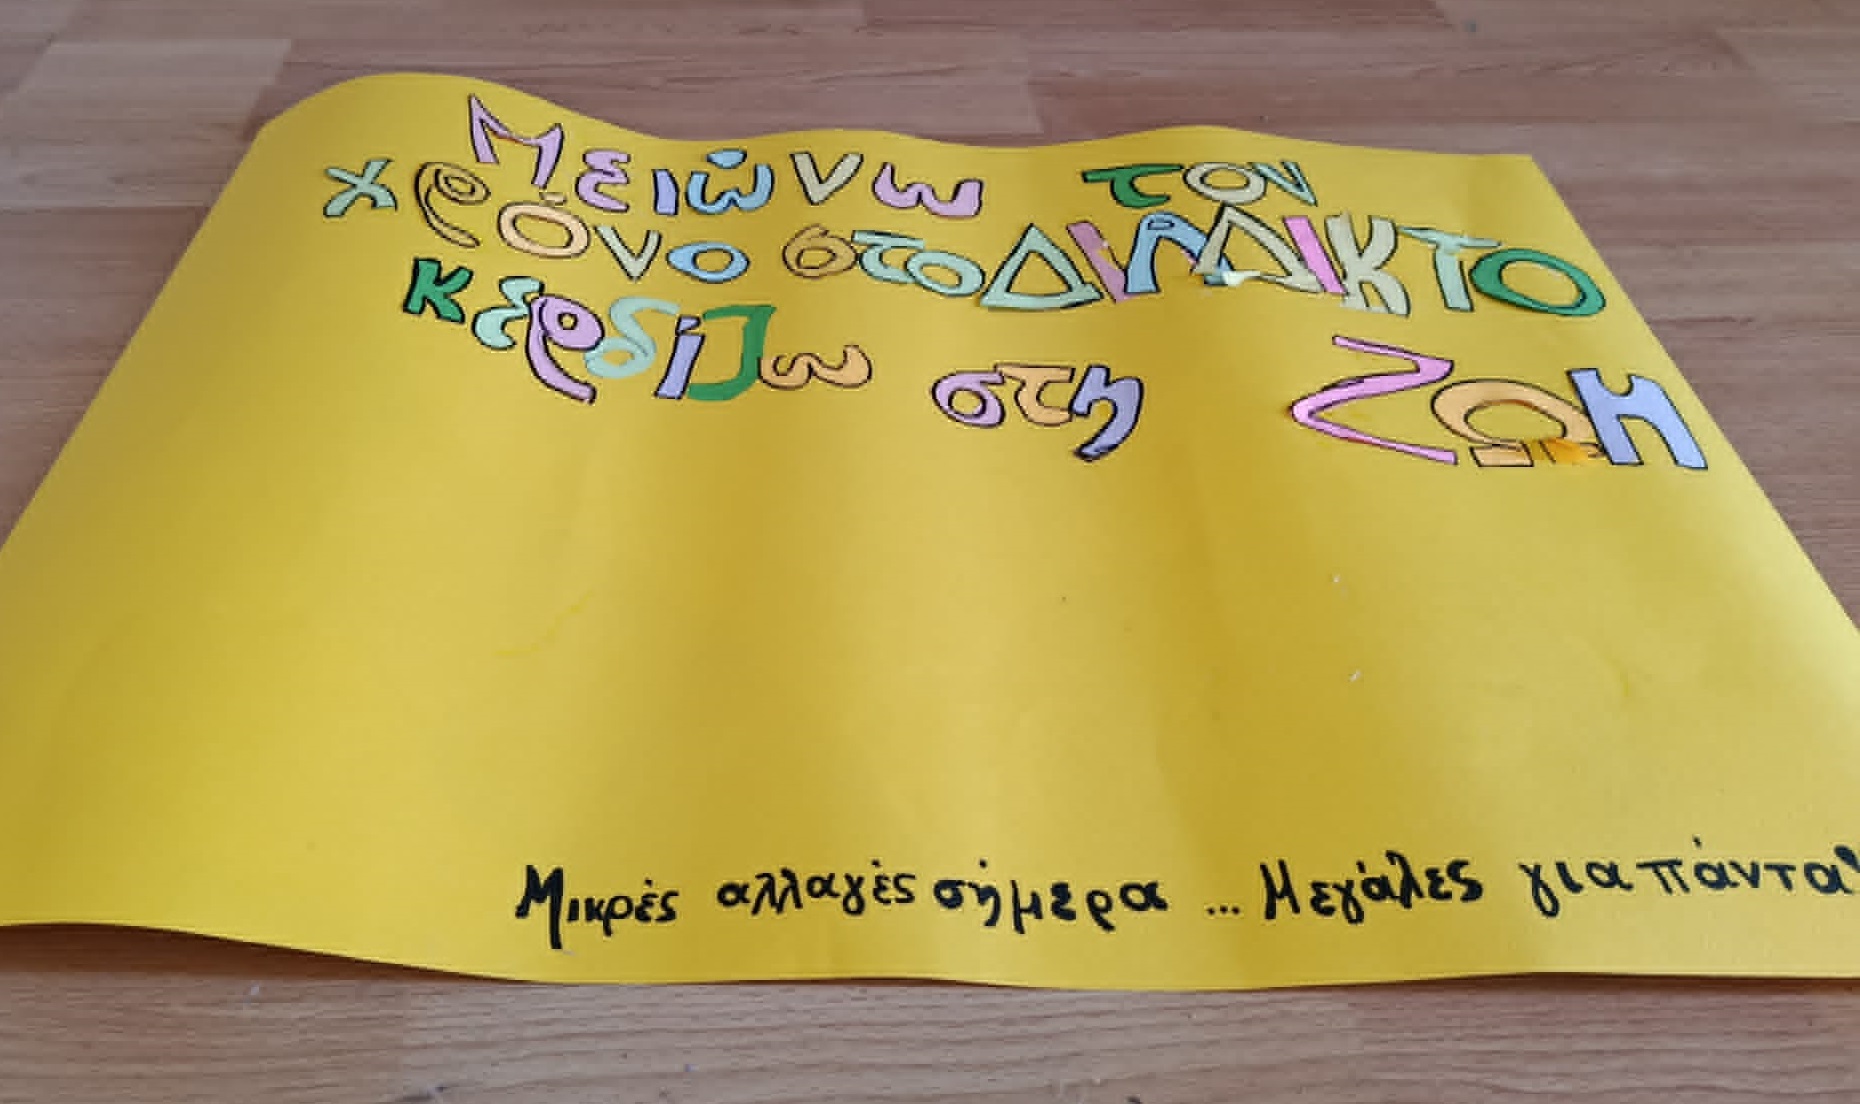 Μειώνω τον
χρόνο στο ΔΙΑΔΙΚΤΟ
κερδίζω στη ΖΩη
Μικρές αλλαγές σήμερα ... Μεγάλες για πάντα